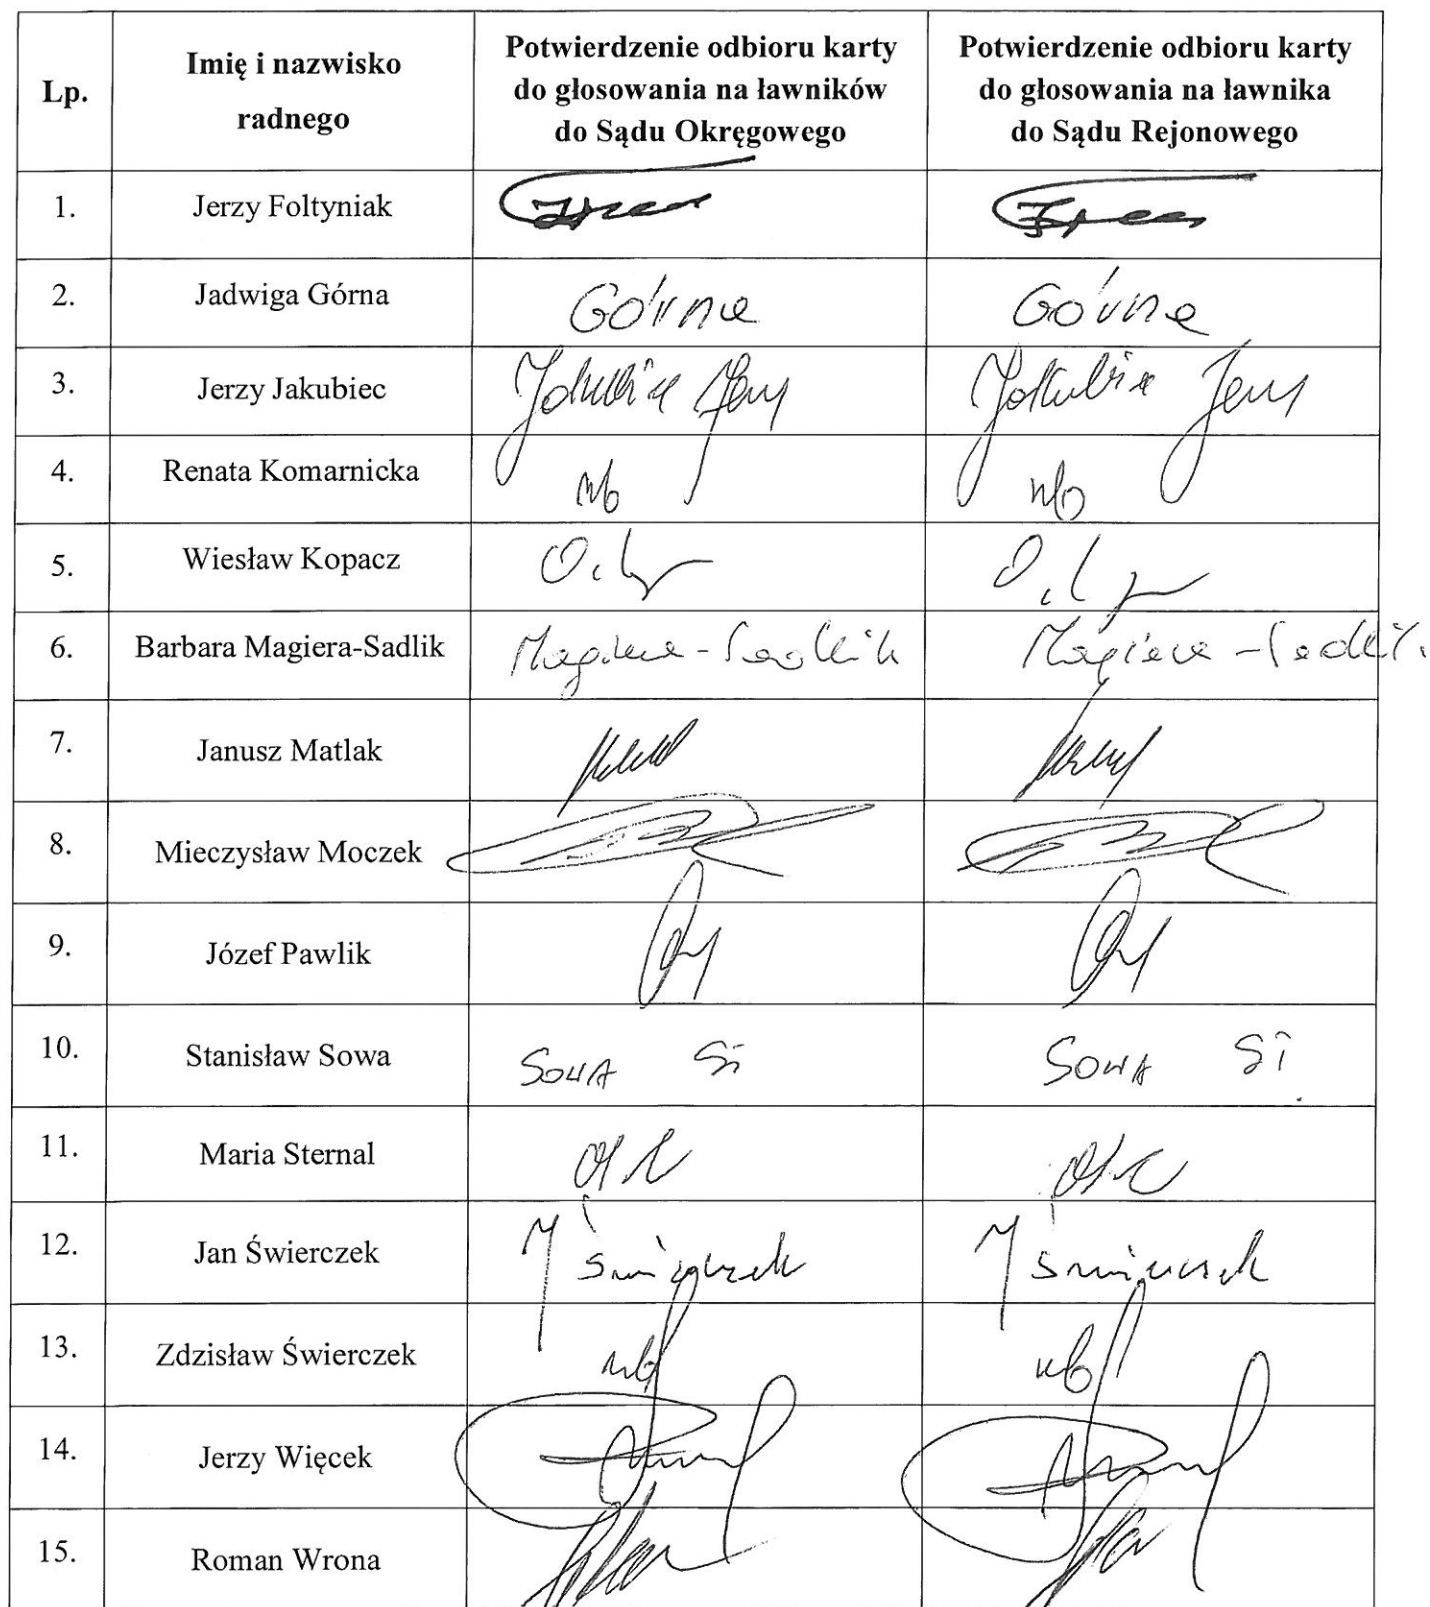 Lp.
Imię i nazwisko
radnego
Potwierdzenie odbioru karty
do głosowania na ławników
do Sądu Okręgowego
Potwierdzenie odbioru karty
do głosowania na ławnika
do Sądu Rejonowego
1. Jerzy Foltyniak
2. Jadwiga Górna Górna Górna
3. Jerzy Jakubiec Jakubiec Jerzy Jakubiec Jerzy
4. Renata Komarnicka nb nb
5. Wiesław Kopacz
6. Barbara Magiera-Sadlik Magiera-Sadlik Magiera-Sadlik
7. Janusz Matlak
8. Mieczysław Moczek
9. Józef Pawlik
10. Stanisław Sowa Sowa St Sowa St
11. Maria Sternal
12. Jan Świerczek J Świerczek J Świerczek
13. Zdzisław Świerczek nb nb
14. Jerzy Więcek
15. Roman Wrona